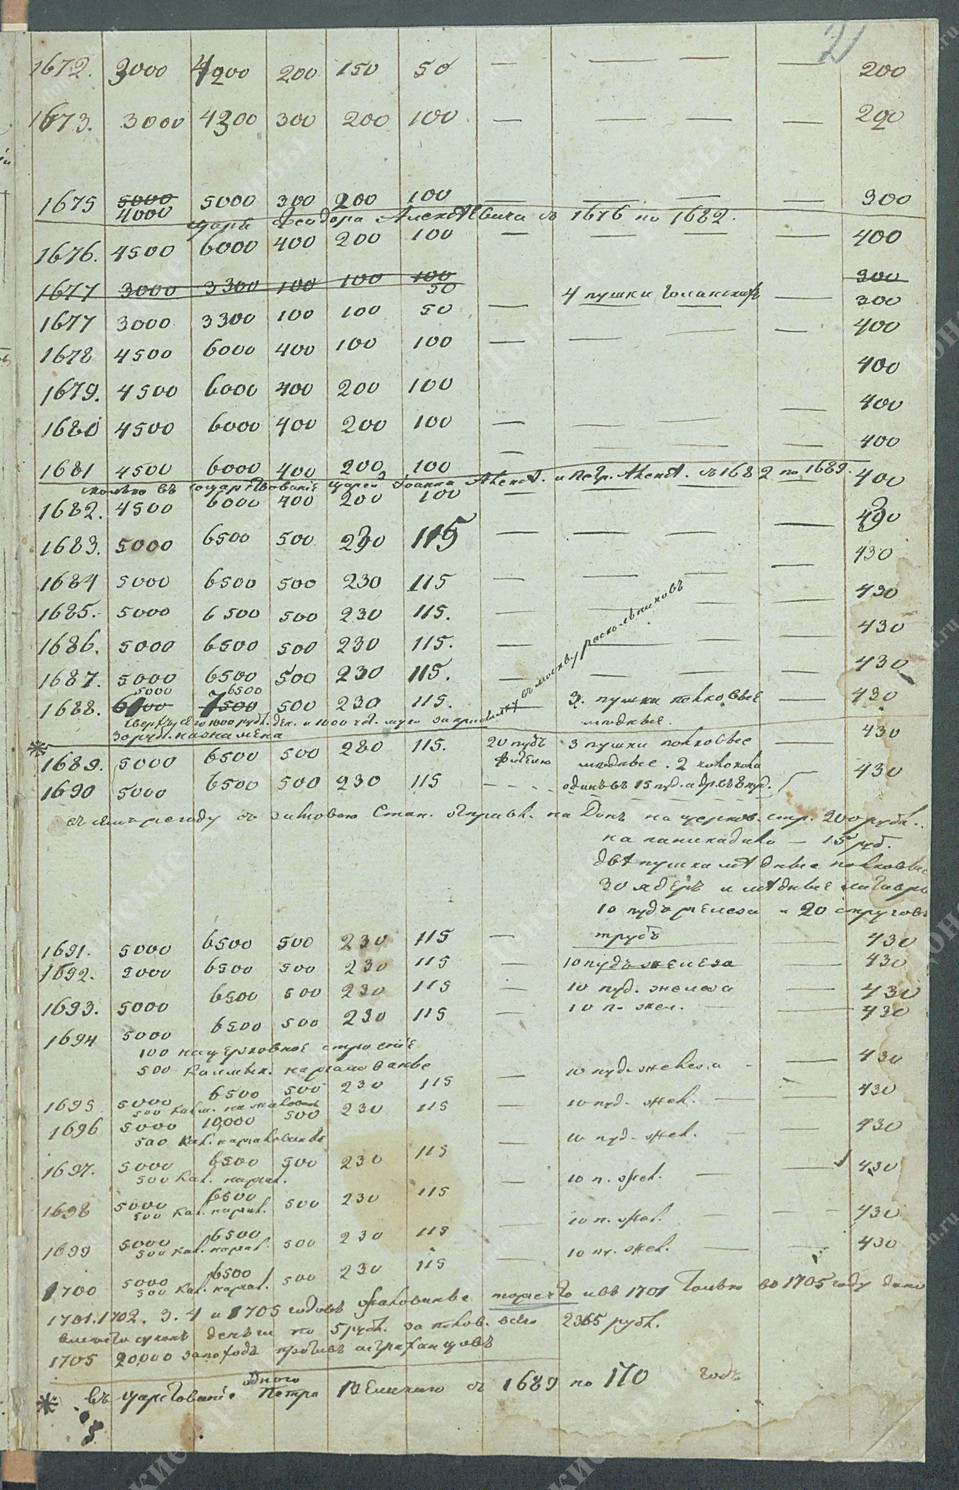 2
1672. 3000 4200 200 150 50 — — — — 200
1673. 3000 4300 300 200 100 — — — — 200
1675 5000 4000 5000 300 200 100 — — — — 300
царя Феодора Алексѣевича съ 1676 по 1682.
1676. 4500 6000 400 200 100 — — — — 400
1677 3000 3300 100 100 100 300
1677 3000 3300 100 100 50 — 4 пушки голанскихъ — 300
1678 4500 6000 400 100 100 — — — 400
1679. 4500 6000 400 200 100 400
1680 4500 6000 400 200 100 — — — — 400
1681 4500 6000 400 200 100 — — — — 400
въ государствованіе царей Іоанна Алексѣ. и Петр. Алексѣ. съ 1682 по 1689.
1682. 4500 6000 400 200 100 — — 400
1683. 5000 6500 500 230 115 — — — — 430
1684 5000 6500 500 230 115 — — — — 430
1685. 5000 6500 500 230 115. — — — — 430
1686. 5000 6500 500 230 115. — — — — 430
1687. 5000 6500 500 230 115. — — — — 430
5000 6500
1688. 6000 7500 500 230 115. — 3. пушки полковые — 430
сверхъ сего 1000 рубл. ден. и 1000 чет. муки за присылку въ москву раскольниковъ
мѣдные.
30 рубл. на знамена
* 1689. 5000 6500 500 280 115. 20 пудъ 3 пушки полковые — 430
фитилю мѣдные. 2 колокола
1690 5000 6500 500 230 115 — одинъ въ 15 пуд. а др. въ 8 пуд. 430
съ зимовою Стан. отправл. на Донъ на церков. стр. 200 рубл.
на паникадило — 15 руб.
двѣ пушки мѣдные полковые
30 ядеръ и мѣдные литавры
10 пудъ железа и 20 струговъ
трубъ
1691. 5000 6500 500 230 115 — — 430
1692. 5000 6500 500 230 115 — 10 пудъ железа — 430
1693. 5000 6500 500 230 115 — 10 пуд. железа — 430
1694 5000 6500 500 230 115 — 10 п. жел. — 430
100 на церковное строеніе
500 Калмык. на жалованье
1695 5000 6500 500 230 115 — 10 пуд. железа — 430
500 Калм. на жалован.
1696 5000 10,000 500 230 115 — 10 пуд. жел. — 430
500 Кал. на жалованье
1697. 5000 6500 500 230 115 — 10 пуд. жел. — 430
500 Кал. на жал.
1698 5000 6500 500 230 115 — 10 п. жел. — — 430
500 Кал. на жал.
1699 5000 6500 500 230 115 — 10 п. жел. — — 430
500 Кал. на жал.
1700 5000 6500 500 230 115 — 10 п. жел. — — 430
500 Кал. на жал.
1701. 1702. 3. 4 и 1705 годовъ жалованье тоже что и въ 1701 только въ 1705 году дано
вмѣсто суконъ деньги по 5 рубл. за полов. всего 2365 рубл.
1705 20,000 за походъ противъ астраханцовъ
* въ царствованіе одного Петра Великаго съ 1689 по 170 годъ